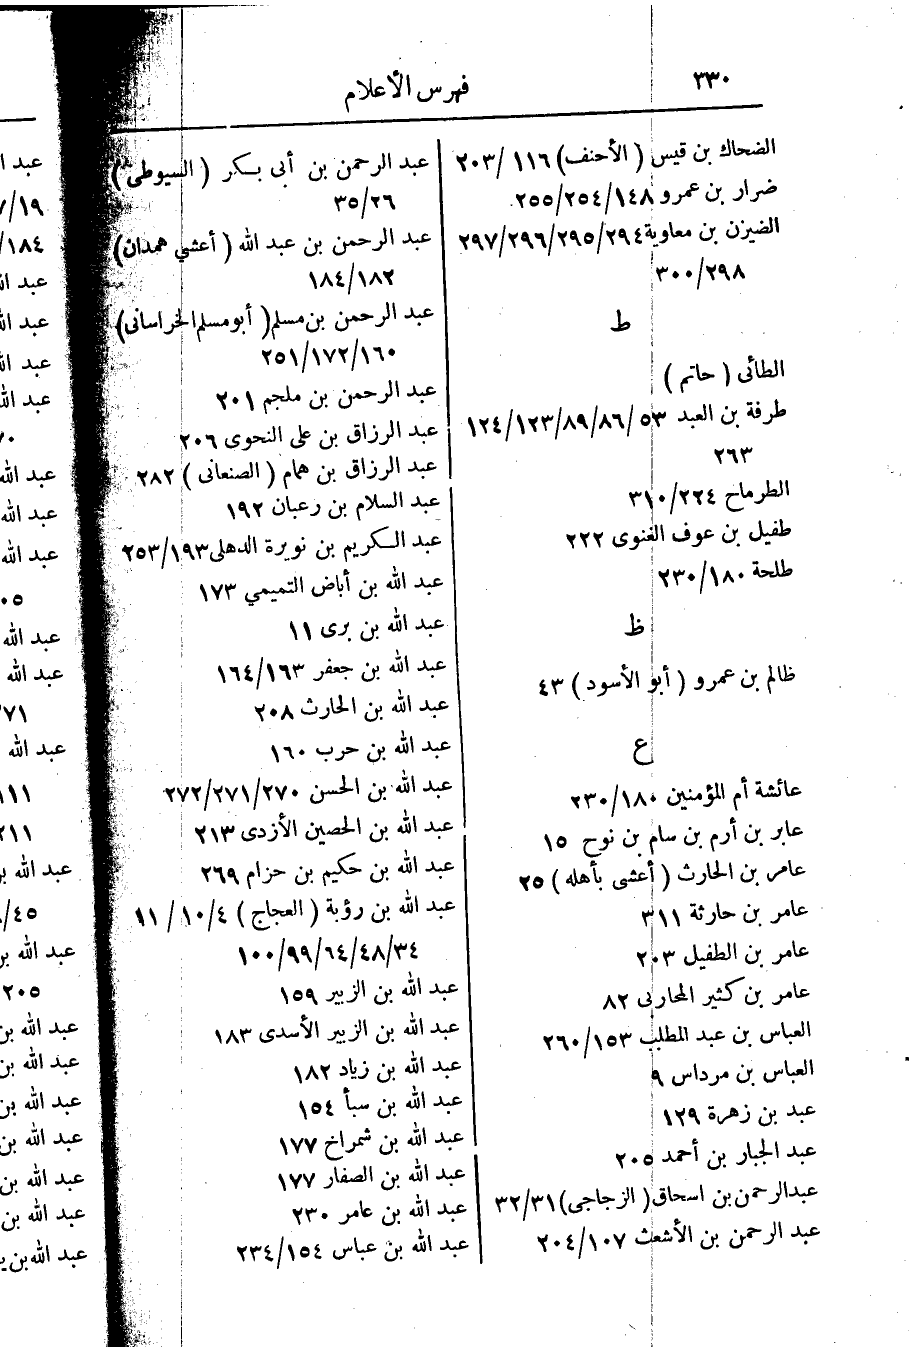 ٣٣٠
فهرس الأعلام
الضحاك بن قيس ( الأحنف ) ١١٦ /٢٠٣
ضرار بن عمرو ١٤٨/٢٥٤/٢٥٥
الضيزن بن معاوية ٢٩٤/٢٩٥/٢٩٦/٢٩٧
٢٩٨/٣٠٠
ط
الطائى ( حاتم )
طرفة بن العبد ٥٣ /٨٦/٨٩/١٢٣/١٢٤
٢٦٣
الطرماح ٢٢٤/٣١٠
طفيل بن عوف الغنوى ٢٢٢
طلحة ١٨٠/٢٣٠
ظ
ظالم بن عمرو ( أبو الأسود ) ٤٣
ع
عائشة أم المؤمنين ١٨٠/٢٣٠
عابر بن أرم بن سام بن نوح ١٥
عامر بن الحارث ( أعشى بأهله ) ٢٥
عامر بن حارثة ٣١١
عامر بن الطفيل ٢٠٣
عامر بن كثير المحاربى ٨٢
العباس بن عبد المطلب ١٥٣/٢٦٠
العباس بن مرداس ٩
عبد بن زهرة ١٢٩
عبد الجبار بن أحمد ٢٠٥
عبد الرحمن بن اسحاق ( الزجاجى ) ٣١/٣٢
عبد الرحمن بن الأشعث ١٠٧/٢٠٤
عبد الرحمن بن أبى بكر ( السيوطى )
٢٦/٣٥
عبد الرحمن بن عبد الله ( أعشي همدان )
١٨٢/١٨٤
عبد الرحمن بن مسلم ( أبو مسلم الخراسانى )
١٦٠/١٧٢/٢٥١
عبد الرحمن بن ملجم ٢٠١
عبد الرزاق بن على النحوى ٢٠٦
عبد الرزاق بن همام ( الصنعانى ) ٢٨٢
عبد السلام بن رعبان ١٩٢
عبد الكريم بن نويرة الدهلى ١٩٣/٢٥٣
عبد الله بن أباض التميمي ١٧٣
عبد الله بن برى ١١
عبد الله بن جعفر ١٦٣/١٦٤
عبد الله بن الحارث ٢٠٨
عبد الله بن حرب ١٦٠
عبد الله بن الحسن ٢٧٠/٢٧١/٢٧٢
عبد الله بن الحصين الأزدى ٢١٣
عبد الله بن حكيم بن حزام ٢٦٩
عبد الله بن رؤبة ( العجاج ) ٤/١٠ /١١
٣٤/٤٨/٦٤/٩٩/١٠٠
عبد الله بن الزبير ١٥٩
عبد الله بن الزبير الأسدى ١٨٣
عبد الله بن زياد ١٨٢
عبد الله بن سبأ ١٥٤
عبد الله بن شمراخ ١٧٧
عبد الله بن الصفار ١٧٧
عبد الله بن عامر ٢٣٠
عبد الله بن عباس ١٥٤/٢٣٤